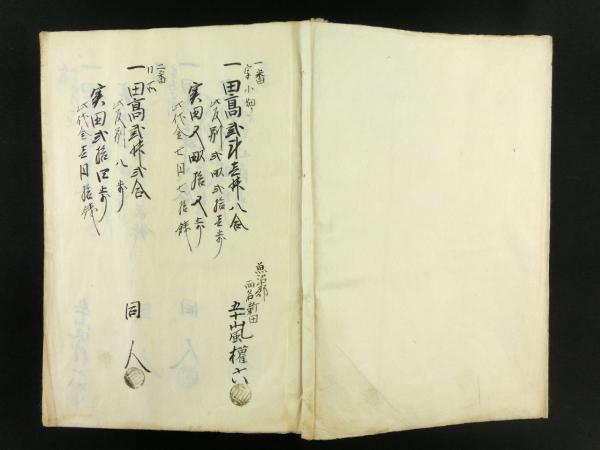 一番
字小畑
一田高弐斗壱升八合
此反別弐畝弐拾壱歩
実田又畝拾又歩
此代金七円七拾銭
魚沼郡
西名新田
五十嵐権六
二番
同所
一田高弐升弐合
此反別八歩
実田弐拾四歩
此代金壱円拾銭
同人